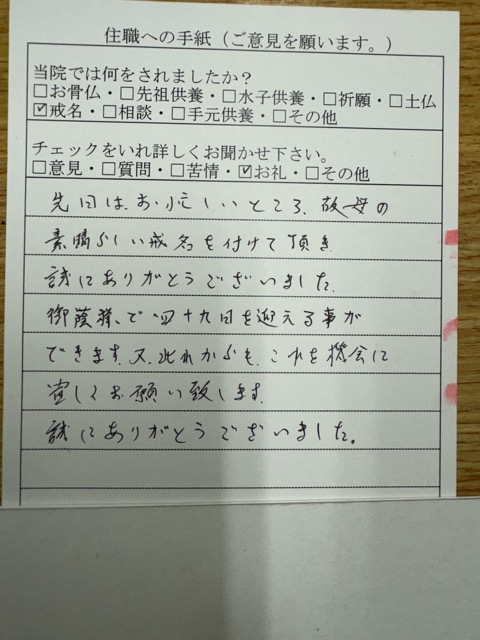 住職への手紙（ご意見を願います。）
当院では何をされましたか？
□お骨仏・□先祖供養・□水子供養・□祈願・□土仏
☑戒名・□相談・□手元供養・□その他
チェックをいれ詳しくお聞かせ下さい。
□意見・□質問・□苦情・☑お礼・□その他
先日は、お忙しいところ、故母の
素晴らしい戒名を付けて頂き
誠にありがとうございました。
御蔭様で四十九日を迎える事が
できます。又、此れからも、これを機会に
宜しくお願い致します。
誠にありがとうございました。